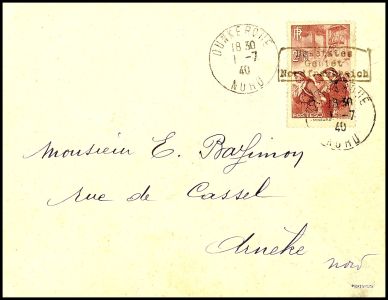 DUNKERQUE
18 30
1 -7
40
NORD
RF
Besetztes
Gebiet
Nordfrankreich
18 30
-7
40
NORD
POSTES
Monsieur E. Bazimon
rue de Cassel
Arnèke
nord